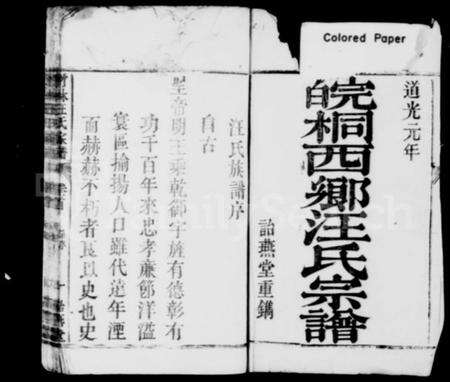 Colored Paper
道光元年
皖桐西鄉汪氏宗譜
詒燕堂重鐫
汪氏族譜序
自古
皇帝明王乘乾御宇旌有德彰有
功千百年來忠孝廉節洋溢
寰區揄揚人口雖代遠年湮
而赫赫不朽者良以史也史